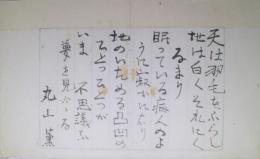 天は羽毛をふらし
地は白くそれにく
るまり
眠っている病人のよ
うに寂かになり
地のいためる凸凹の
ひとつひとつが
いま 不思議な
夢を見てゐる
丸山薫